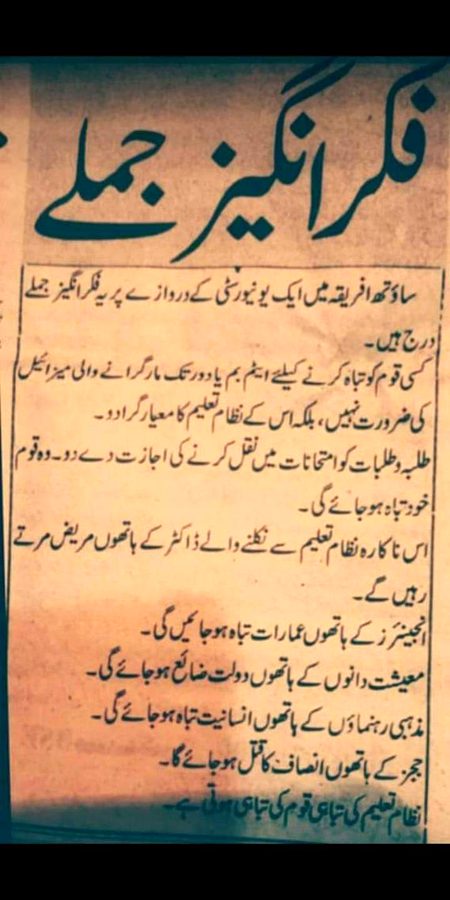 فکر انگیز جملے
ساؤتھ افریقہ میں ایک یونیورسٹی کے دروازے پر یہ فکر انگیز جملے
درج ہیں۔
کسی قوم کو تباہ کرنے کیلئے ایٹم بم یا دور تک مار گرانے والی میزائیل
کی ضرورت نہیں، بلکہ اس کے نظام تعلیم کا معیار گرا دو۔
طلبہ و طلبات کو امتحانات میں نقل کرنے کی اجازت دے دو۔ وہ قوم
خود تباہ ہو جائے گی۔
اس ناکارہ نظام تعلیم سے نکلنے والے ڈاکٹر کے ہاتھوں مریض مرتے
رہیں گے۔
انجینئرز کے ہاتھوں عمارات تباہ ہو جائیں گی۔
معیشت دانوں کے ہاتھوں دولت ضائع ہو جائے گی۔
مذہبی رہنماؤں کے ہاتھوں انسانیت تباہ ہو جائے گی۔
ججز کے ہاتھوں انصاف کا قتل ہو جائے گا۔
نظام تعلیم کی تباہی قوم کی تباہی ہوتی ہے۔